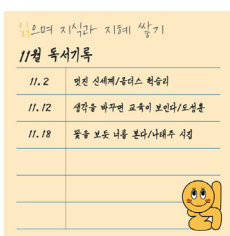 읽으며 지식과 지혜 쌓기
11월 독서기록
11.2 멋진 신세계/올더스 헉슬리
11.12 생각을 바꾸면 교육이 보인다/도성훈
11.18 꽃을 보듯 너를 본다/나태주 시집